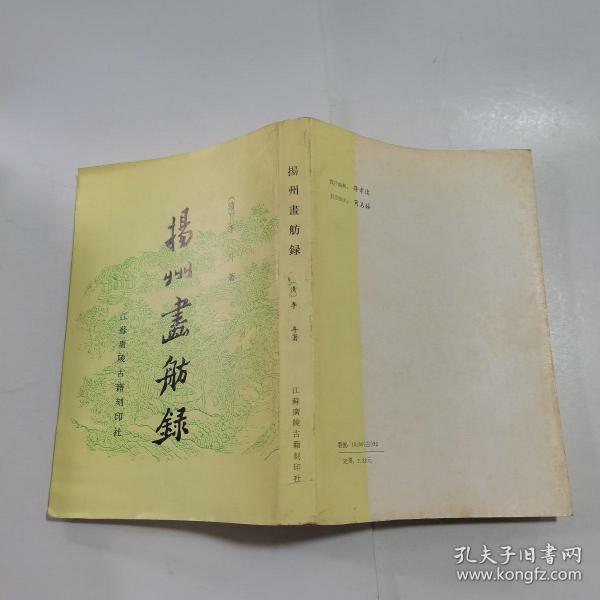 揚州畫舫録
(清)李斗著
江蘇廣陵古籍刻印社
揚州畫舫録
(清)李斗著
江蘇廣陵古籍刻印社
定价:
孔夫子旧书网
www.kongfz.com